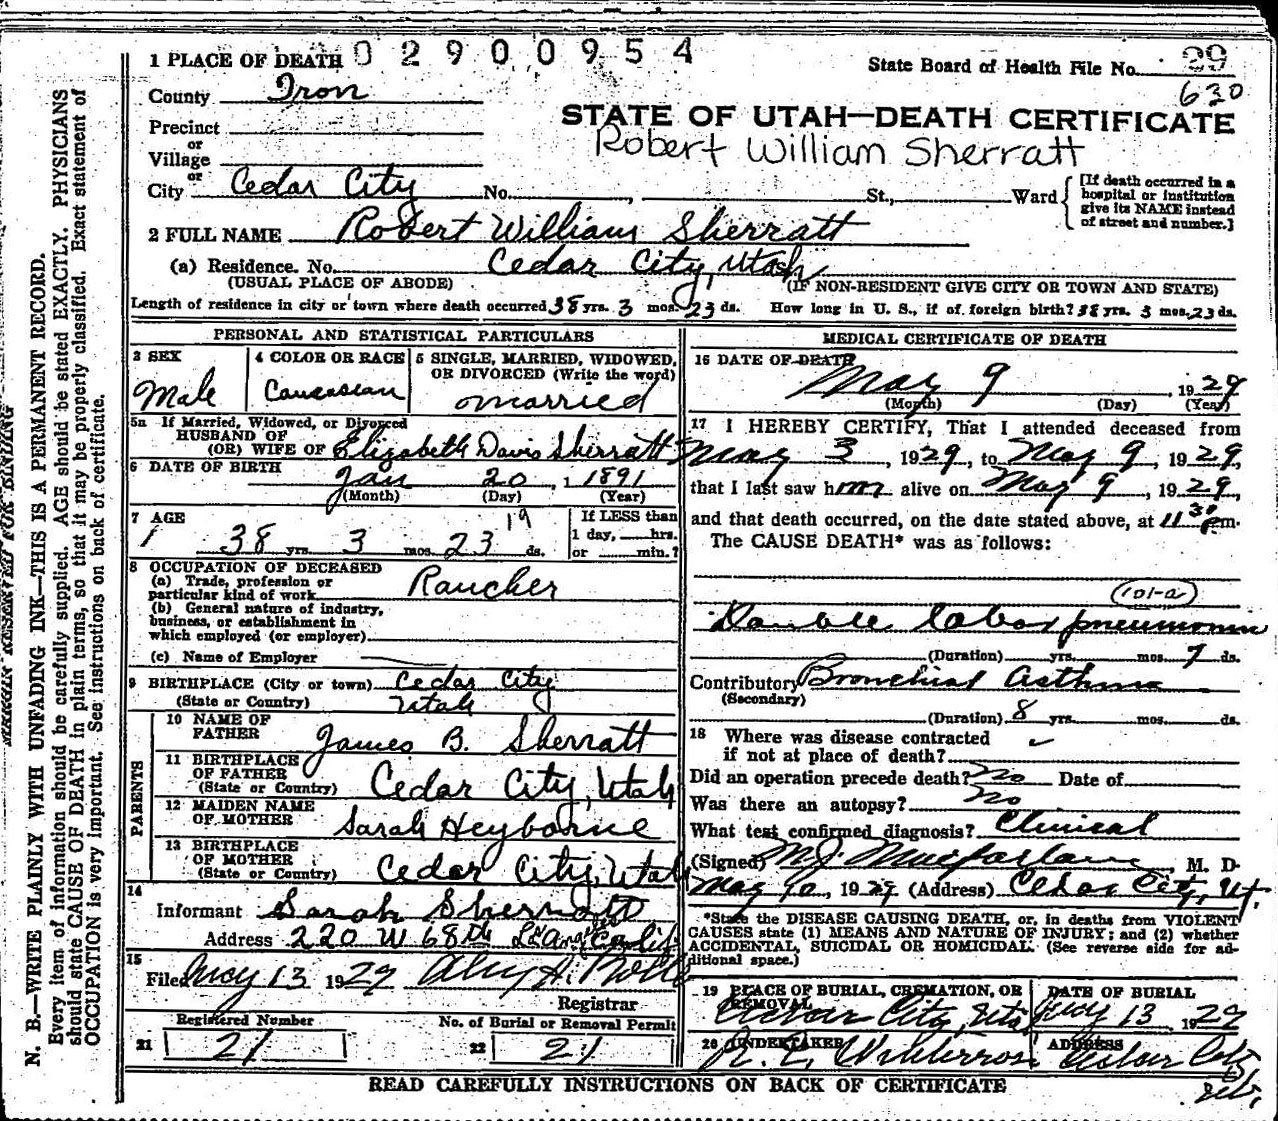 0 2 9 0 0 9 5 4
1 PLACE OF DEATH
State Board of Health File No. 29
630
County Iron
STATE OF UTAH—DEATH CERTIFICATE
Precinct
Robert William Sherratt
or
Village
or
City Cedar City No. , St., Ward
[If death occurred in a hospital or institution give its NAME instead of street and number.]
2 FULL NAME Robert William Sherratt
(a) Residence. No. Cedar City, Utah
(USUAL PLACE OF ABODE) (IF NON-RESIDENT GIVE CITY OR TOWN AND STATE)
Length of residence in city or town where death occurred 38 yrs. 3 mos. 23 ds. How long in U. S., if of foreign birth? 38 yrs. 3 mos. 23 ds.
PERSONAL AND STATISTICAL PARTICULARS
3 SEX
Male
4 COLOR OR RACE
Caucasian
5 SINGLE, MARRIED, WIDOWED,
OR DIVORCED (Write the word)
married
5a If Married, Widowed, or Divorced
HUSBAND OF
(OR) WIFE OF Elizabeth Davis Sherratt
6 DATE OF BIRTH Jan 20, 1891
(Month) (Day) (Year)
7 AGE
38 yrs. 3 mos. 23 19 ds.
If LESS than
1 day, hrs.
or min.?
8 OCCUPATION OF DECEASED
(a) Trade, profession or
particular kind of work Rancher
(b) General nature of industry,
business, or establishment in
which employed (or employer)
(c) Name of Employer
9 BIRTHPLACE (City or town) Cedar City
(State or Country) Utah
PARENTS
10 NAME OF
FATHER James B. Sherratt
11 BIRTHPLACE
OF FATHER
(State or Country) Cedar City, Utah
12 MAIDEN NAME
OF MOTHER Sarah Heyborne
13 BIRTHPLACE
OF MOTHER
(State or Country) Cedar City, Utah
14
Informant Sarah Sherratt
Address 220 W 68th Los Angeles Calif
15
Filed May 13 1929
Registrar
Registered Number
21 21
No. of Burial or Removal Permit
22 21
MEDICAL CERTIFICATE OF DEATH
16 DATE OF DEATH
May 9, 1929
(Month) (Day) (Year)
17 I HEREBY CERTIFY, That I attended deceased from
May 3, 1929, to May 9, 1929,
that I last saw him alive on May 9, 1929,
and that death occurred, on the date stated above, at 11 30 pm.
The CAUSE DEATH* was as follows:
(101-a)
Double lobar pneumonia
(Duration) yrs. mos. 7 ds.
Contributory Bronchial asthma
(Secondary)
(Duration) 8 yrs. mos. ds.
18 Where was disease contracted
if not at place of death?
Did an operation precede death? no Date of
Was there an autopsy? no
What test confirmed diagnosis? Clinical
(Signed) M.J. Macfarlane, M. D.
May 10, 1929 (Address) Cedar City, Ut.
*State the DISEASE CAUSING DEATH, or, in deaths from VIOLENT
CAUSES state (1) MEANS AND NATURE OF INJURY; and (2) whether
ACCIDENTAL, SUICIDAL OR HOMICIDAL. (See reverse side for ad-
ditional space.)
19 PLACE OF BURIAL, CREMATION, OR
REMOVAL
Cedar City, Utah
DATE OF BURIAL
May 13, 1929
20 UNDERTAKER
ADDRESS
Cedar City
Ut.
READ CAREFULLY INSTRUCTIONS ON BACK OF CERTIFICATE
MARGIN RESERVED FOR BINDING
N. B.—WRITE PLAINLY WITH UNFADING INK—THIS IS A PERMANENT RECORD.
Every item of information should be carefully supplied. AGE should be stated EXACTLY. PHYSICIANS
should state CAUSE OF DEATH in plain terms, so that it may be properly classified. Exact statement of
OCCUPATION is very important. See instructions on back of certificate.